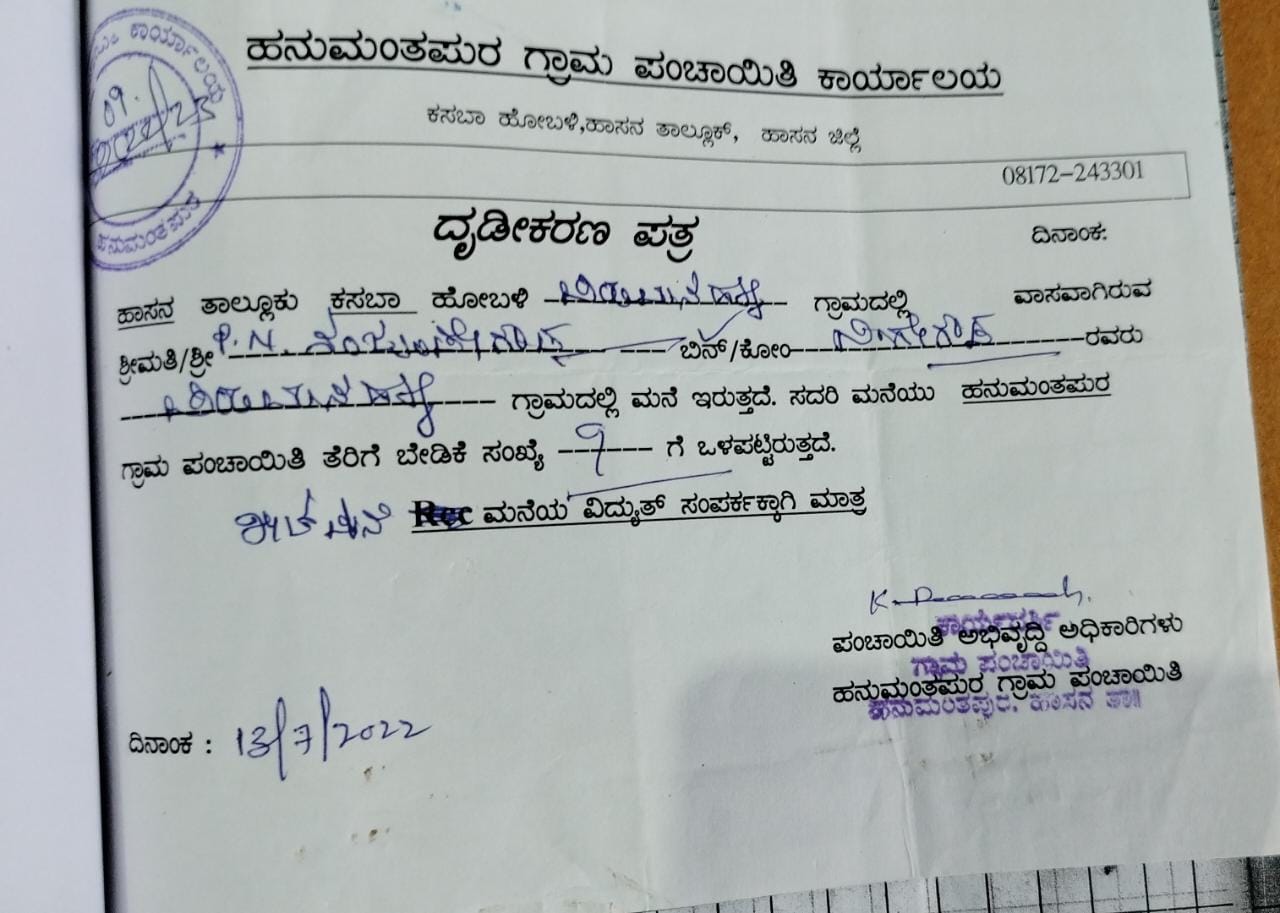 ಹನುಮಂತಪುರ ಗ್ರಾಮ ಪಂಚಾಯಿತಿ ಕಾರ್ಯಾಲಯ
ಕಸಬಾ ಹೋಬಳಿ,ಹಾಸನ ತಾಲ್ಲೂಕ್, ಹಾಸನ ಜಿಲ್ಲೆ
ಕಾರ್ಯಾಲಯ
ಹನುಮಂತಪುರ
08172-243301
ದೃಡೀಕರಣ ಪತ್ರ
ದಿನಾಂಕ:
ಹಾಸನ ತಾಲ್ಲೂಕು ಕಸಬಾ ಹೋಬಳಿ ಗ್ರಾಮದಲ್ಲಿ ವಾಸವಾಗಿರುವ
ಶ್ರೀಮತಿ/ಶ್ರೀ P.N. ನಂಜುಂಡೇಗೌಡ ಬಿನ್/ಕೋಂ ನಿಂಗೇಗೌಡ ರವರು
ಗ್ರಾಮದಲ್ಲಿ ಮನೆ ಇರುತ್ತದೆ. ಸದರಿ ಮನೆಯು ಹನುಮಂತಪುರ
ಗ್ರಾಮ ಪಂಚಾಯಿತಿ ತೆರಿಗೆ ಬೇಡಿಕೆ ಸಂಖ್ಯೆ 9 ಗೆ ಒಳಪಟ್ಟಿರುತ್ತದೆ.
ಮನೆಯ ವಿದ್ಯುತ್ ಸಂಪರ್ಕಕ್ಕಾಗಿ ಮಾತ್ರ
ಪಂಚಾಯಿತಿ ಅಭಿವೃದ್ದಿ ಅಧಿಕಾರಿಗಳು
ಹನುಮಂತಪುರ ಗ್ರಾಮ ಪಂಚಾಯಿತಿ
ಕಾರ್ಯದರ್ಶಿ
ಗ್ರಾಮ ಪಂಚಾಯಿತಿ
ಹನುಮಂತಪುರ, ಹಾಸನ ತಾ॥
ದಿನಾಂಕ : 13/7/2022